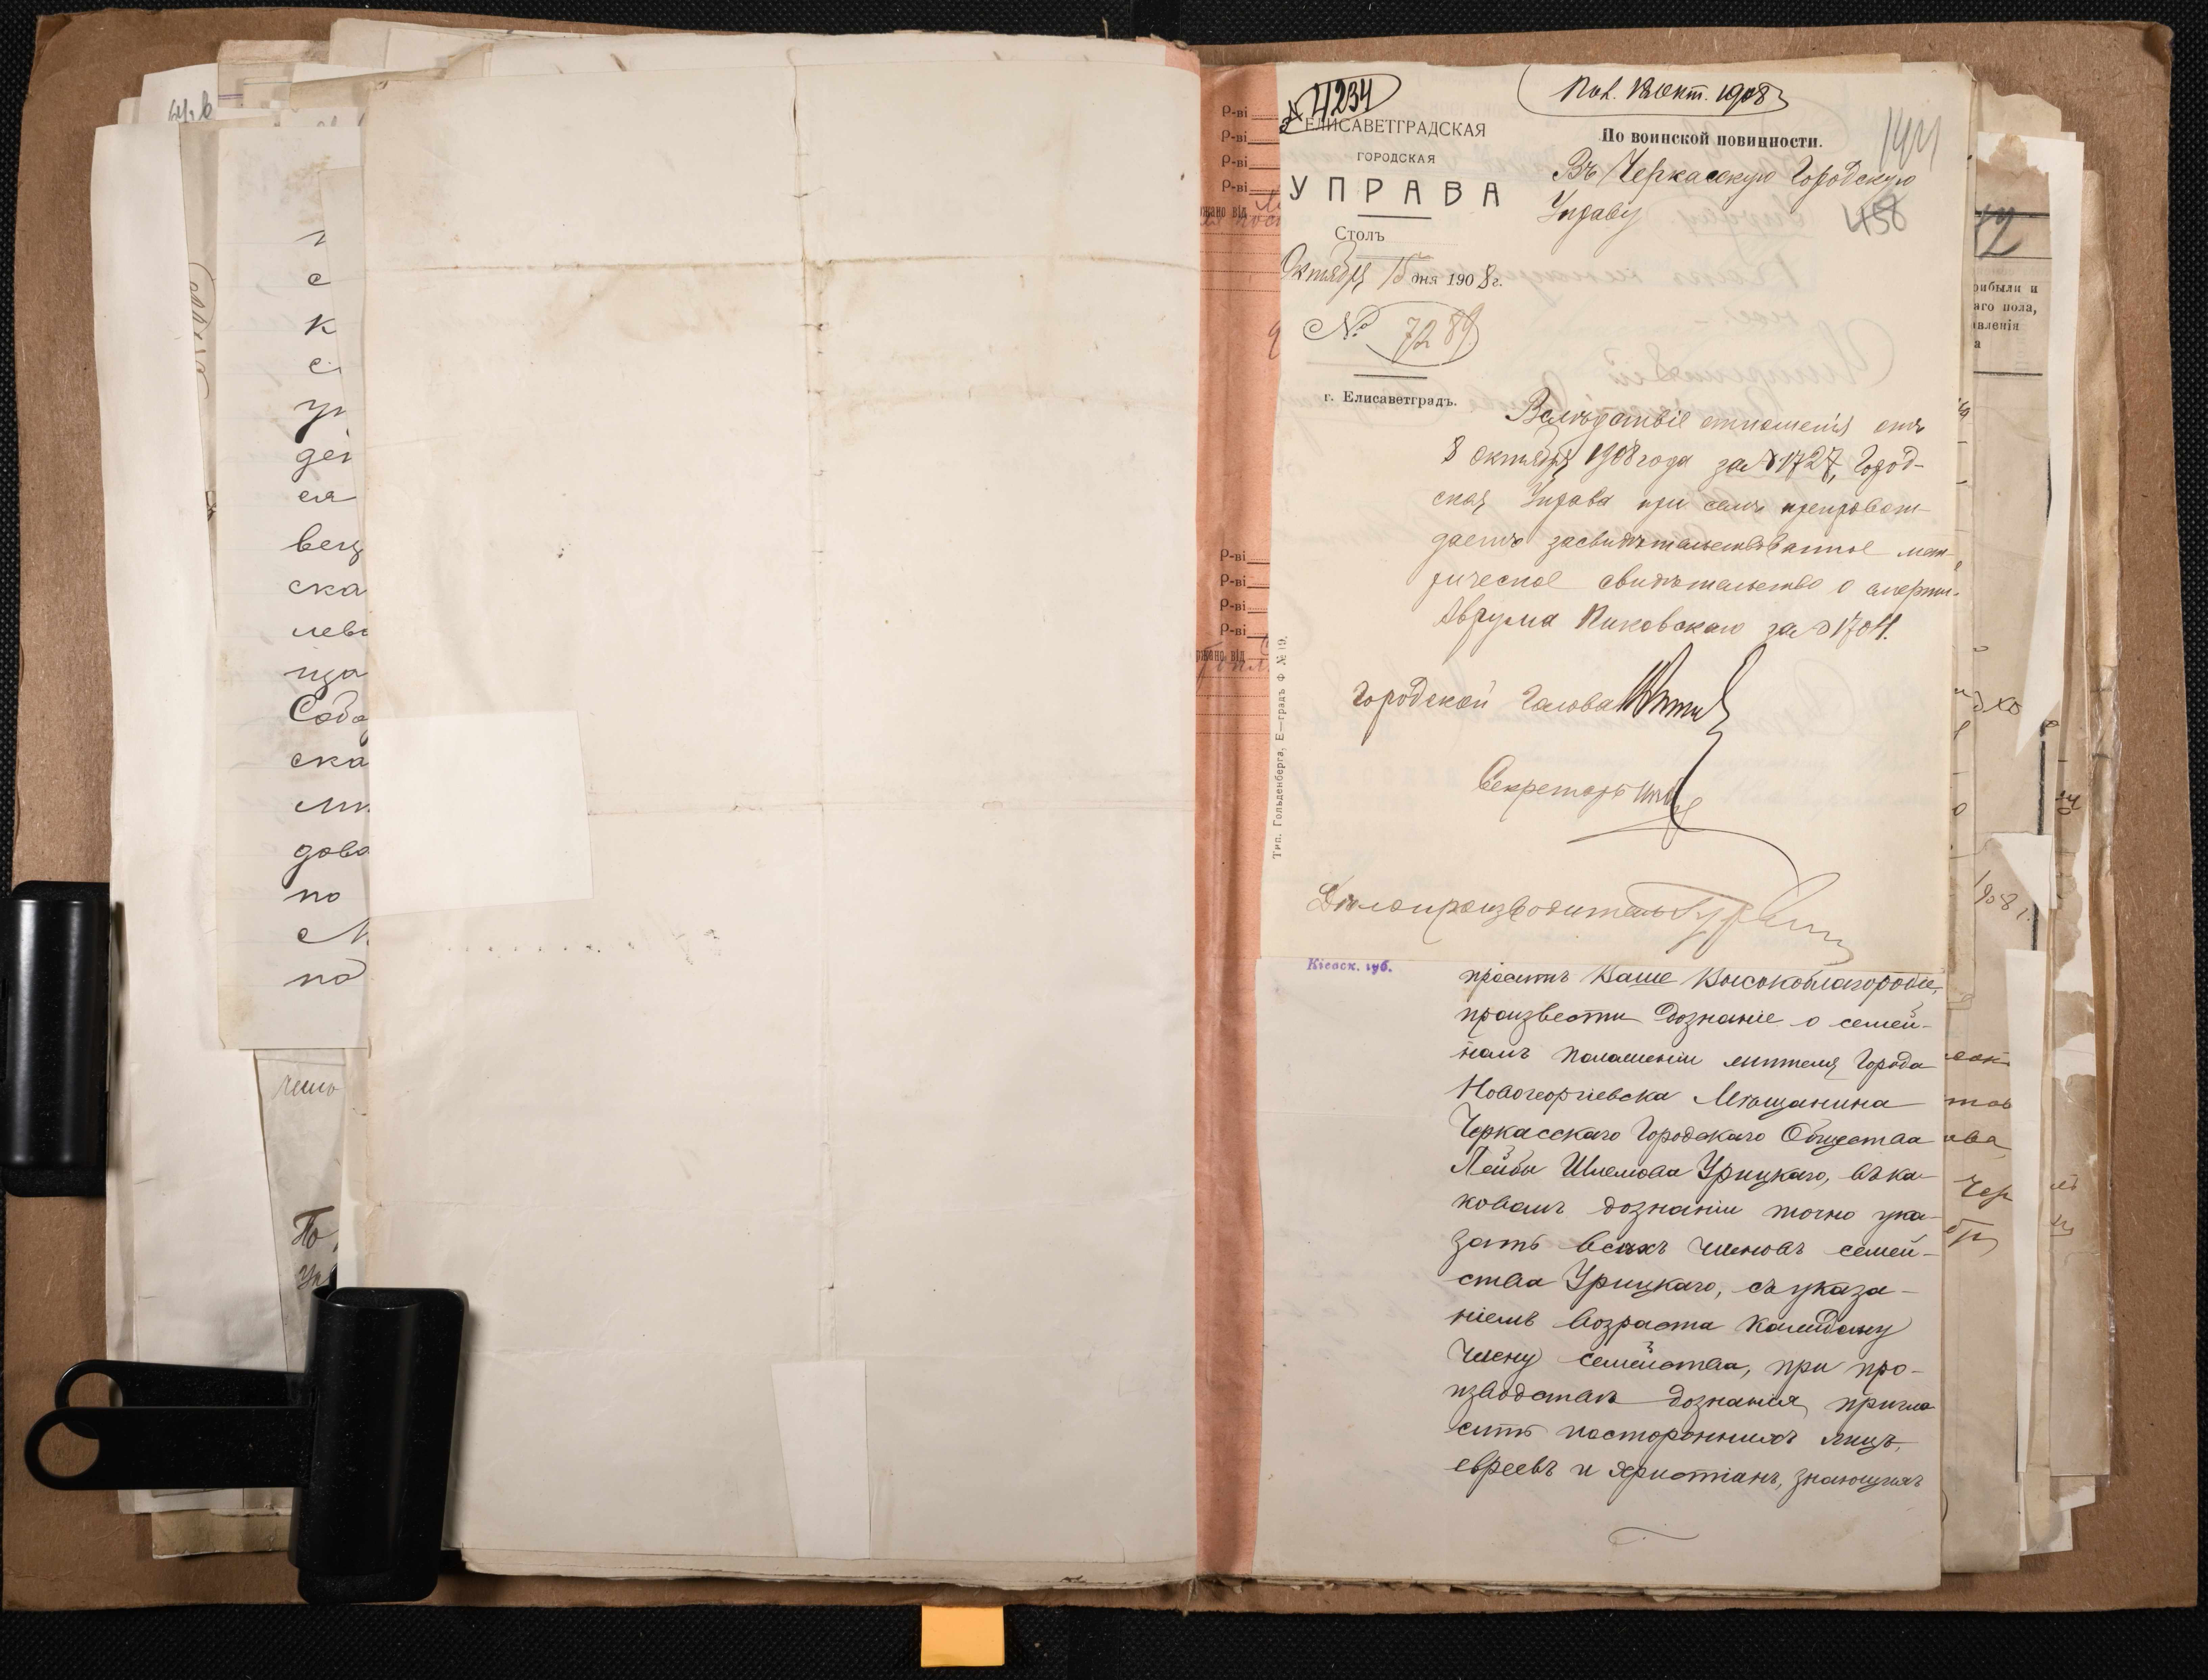 с
к
ден
ея
вещ
ска
лево
ща
ска
дова
по
под
По
Р-ві
Р-ві
Р-ві
Р-ві
Р-ві
Р-ві
Р-ві
Р-ві
№ 4234
Пол. 18 Окт. 1908
ЕЛИСАВЕТГРАДСКАЯ
ГОРОДСКАЯ
УПРАВА
Столъ
Октября 15 дня 1908 г.
№ 7289
г. Елисаветградъ.
По воинской повинности.
Въ Черкасскую Городскую
Управу
458
Вслѣдствіе отношенія отъ
8 Октября 1908 года за № 1727, Город-
ская Управа при семъ препровож-
даетъ засвидѣтельствованное мет-
рическое свидѣтельство о смерти
Аврума Пиковскаго за № 1704.
Городской Голова
Секретарь
Дѣлопроизводитель
Тип. Гольденберга, Е—градъ Ф № 19.
Кіевск. губ.
проситъ Ваше Высокоблагородіе,
произвести дознаніе о семей-
номъ положеніи жителя Города
Новогеоргіевска Мѣщанина
Черкасскаго Городскаго Общества
Лейбы Шлемова Урицкаго, въ ка-
ковомъ дознаніи точно ука-
зать всѣхъ членовъ семей-
ства Урицкаго, съ указа-
ніемъ возраста каждому
члену семейства, при про-
изводствѣ дознанія, пригла
сить постороннихъ лицъ,
евреевъ и христіанъ, знающихъ
рибыли и
аго пола,
вленія
а
1908 г.